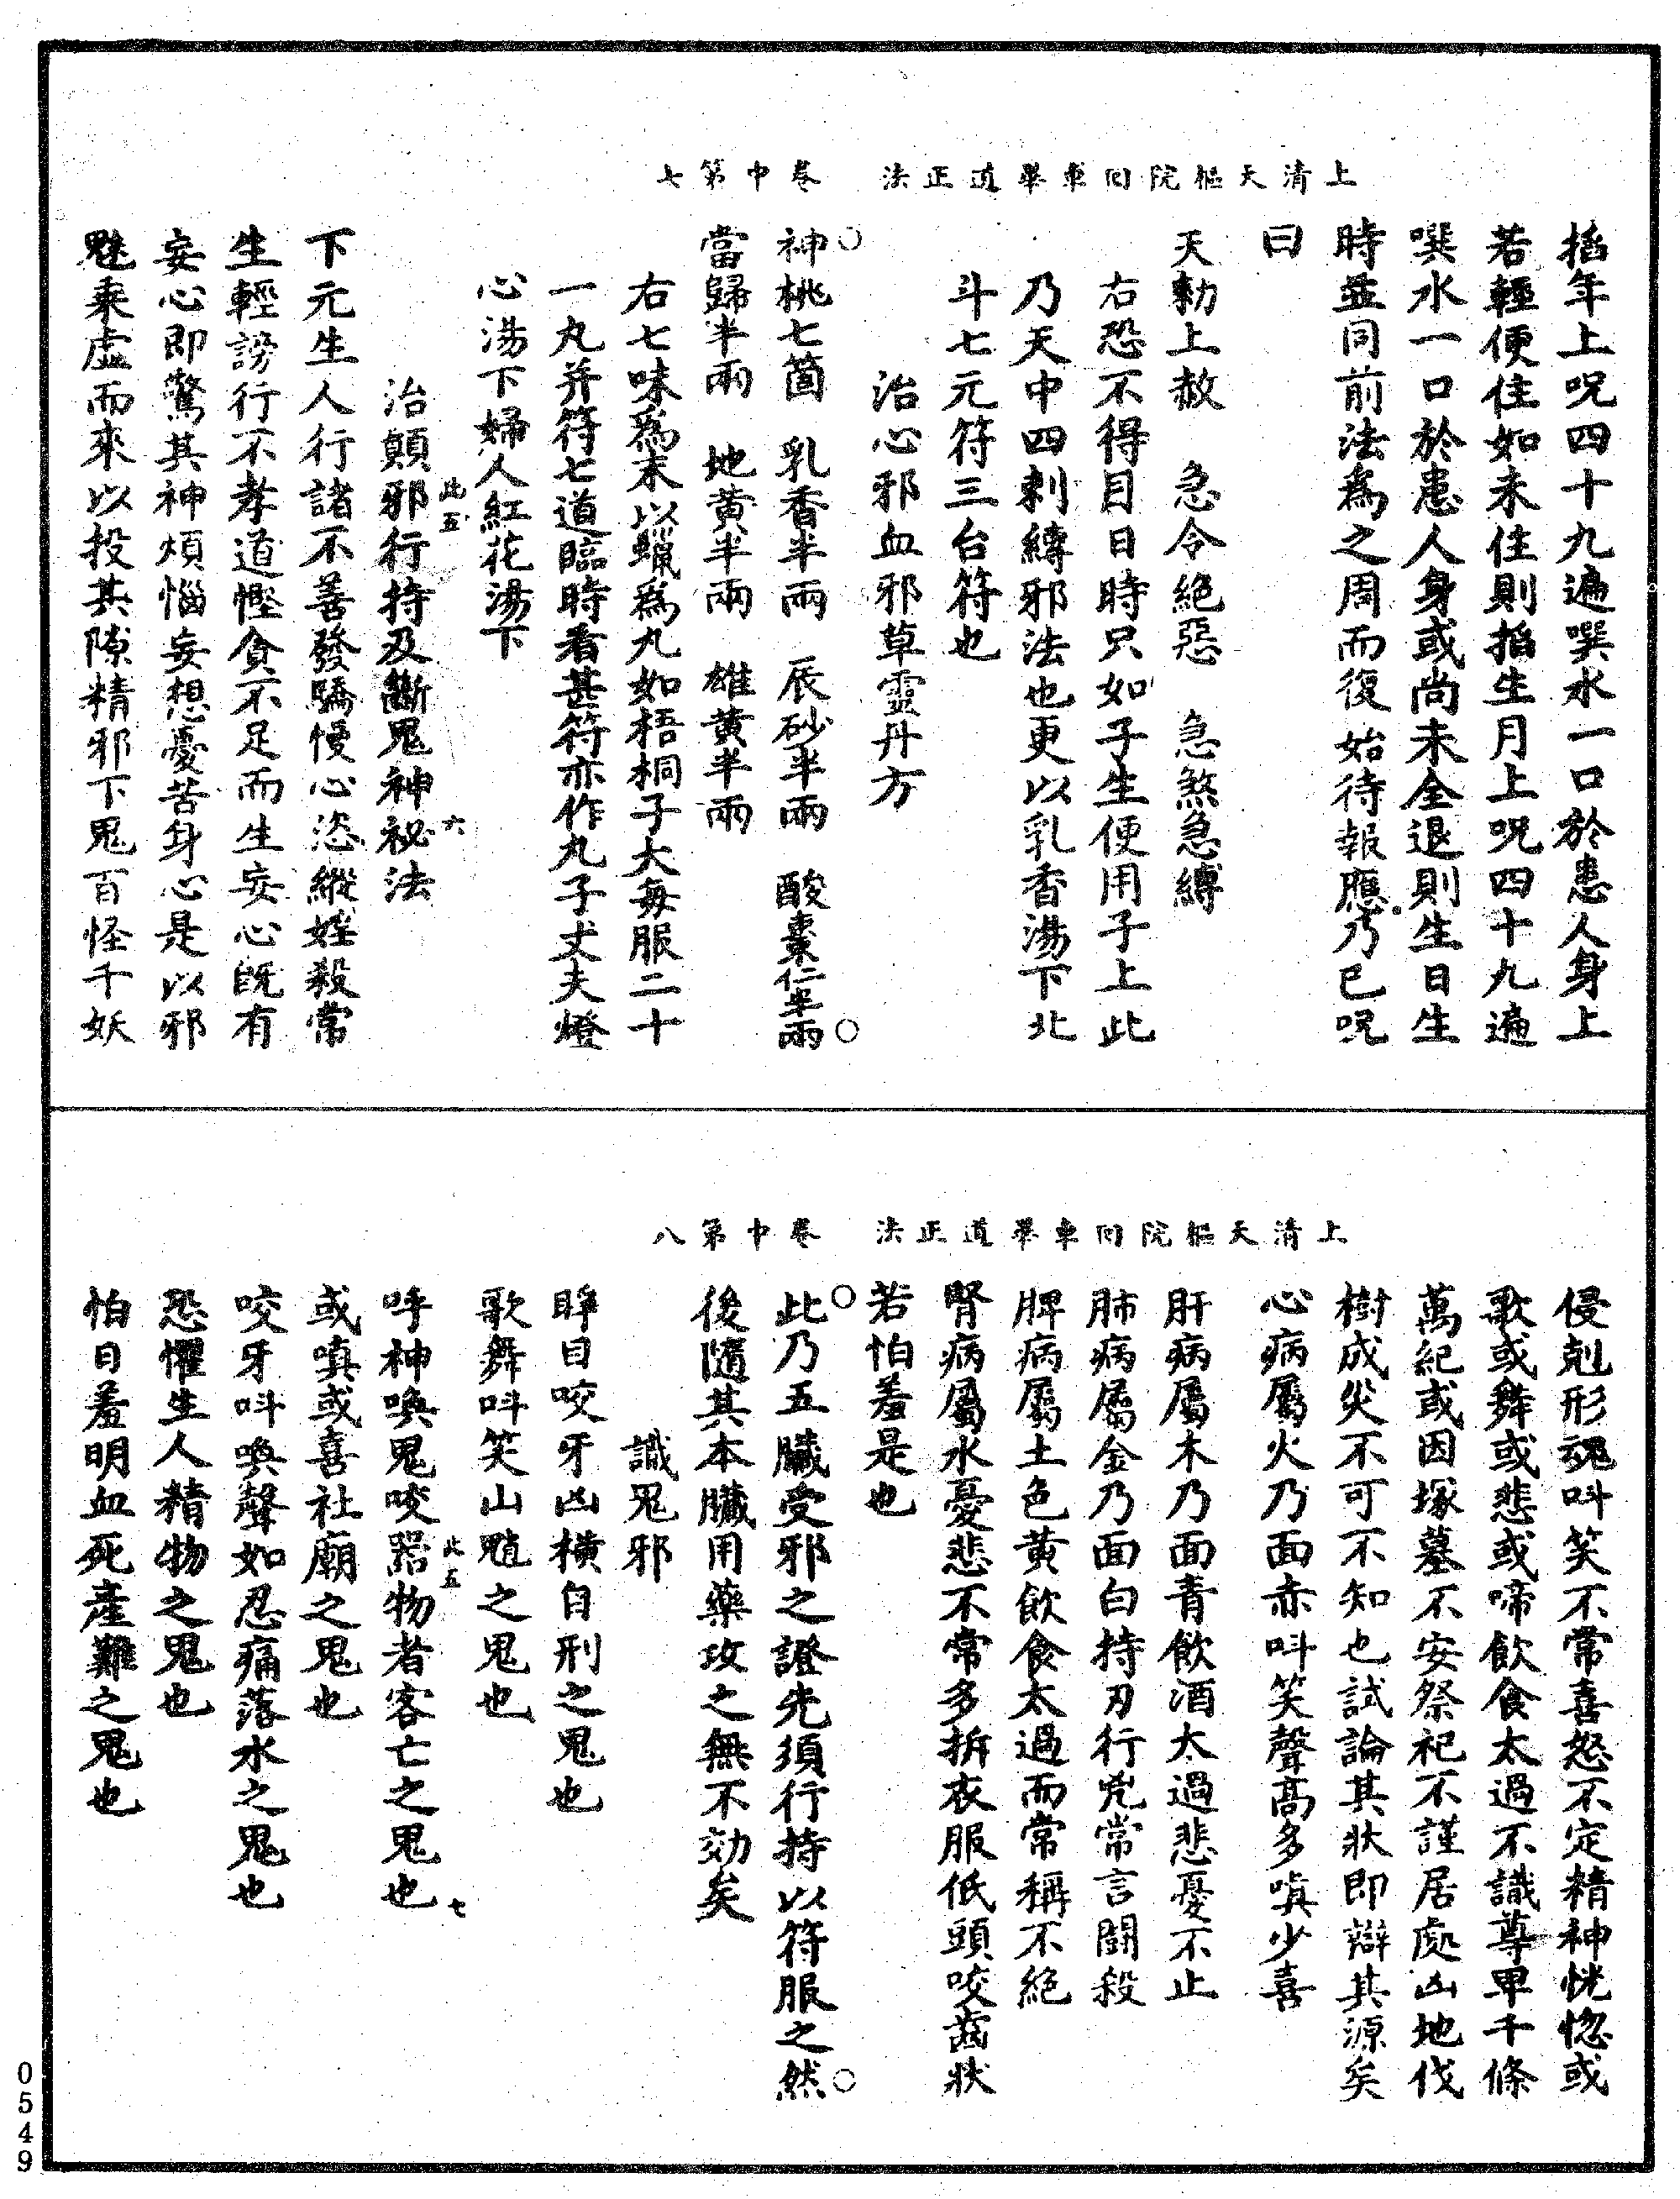 上清天樞院回車畢道正法　卷中第七
掐年上呪四十九遍噀水一口於患人身上
若輕便住如未住則掐生月上呪四十九遍
噀水一口於患人身或尚未全退則生日生
時並同前法爲之周而復始待報應乃已呪
曰
天勑上赦　急令絕惡　急煞急縛
右恐不得目日時只如子生便用子上此
乃天中四刺縳邪法也更以乳香湯下北
斗七元符三台符也
治心邪血邪草靈丹方
神桃七箇　乳香半兩　辰砂半兩　酸棗仁半兩
當歸半兩　地黄半兩　雄黄半兩
右七味爲末以蠟爲丸如梧桐子大每服二十
一丸并符七道臨時看甚符亦作丸子丈夫燈
心湯下婦人紅花湯下
治顛邪行持及斷鬼神祕法
此五　六
下元生人行諸不善發驕慢心恣縱婬殺常
生輕謗行不孝道慳貪不足而生妄心既有
妄心即驚其神煩惱妄想憂苦身心是以邪
魅乘虛而來以投其隙精邪下鬼百怪千妖
上清天樞院回車畢道正法　卷中第八
侵剋形魂呌笑不常喜怒不定精神恍惚或
歌或舞或悲或啼飲食太過不識尊卑千條
萬紀或因塚墓不安祭祀不謹居處凶地伐
樹成災不可不知也試論其狀即辯其源矣
心病屬火乃面赤呌笑聲高多嗔少喜
肝病屬木乃面青飲酒太過悲憂不止
肺病屬金乃面白持刃行兇常言鬬殺
脾病屬土色黄飲食太過而常稱不絕
腎病屬水憂悲不常多拆衣服低頭咬齒狀
若怕羞是也
此乃五臟受邪之證先須行持以符服之然
後隨其本臟用藥攻之無不効矣
識鬼邪
眸目咬牙凶橫自刑之鬼也
歌舞呌笑山魈之鬼也
呼神喚鬼咬噐物者客亡之鬼也
此五　七
或嗔或喜社廟之鬼也
咬牙呌喚聲如忍痛落水之鬼也
恐懼生人精物之鬼也
怕日羞明血死產難之鬼也
0549